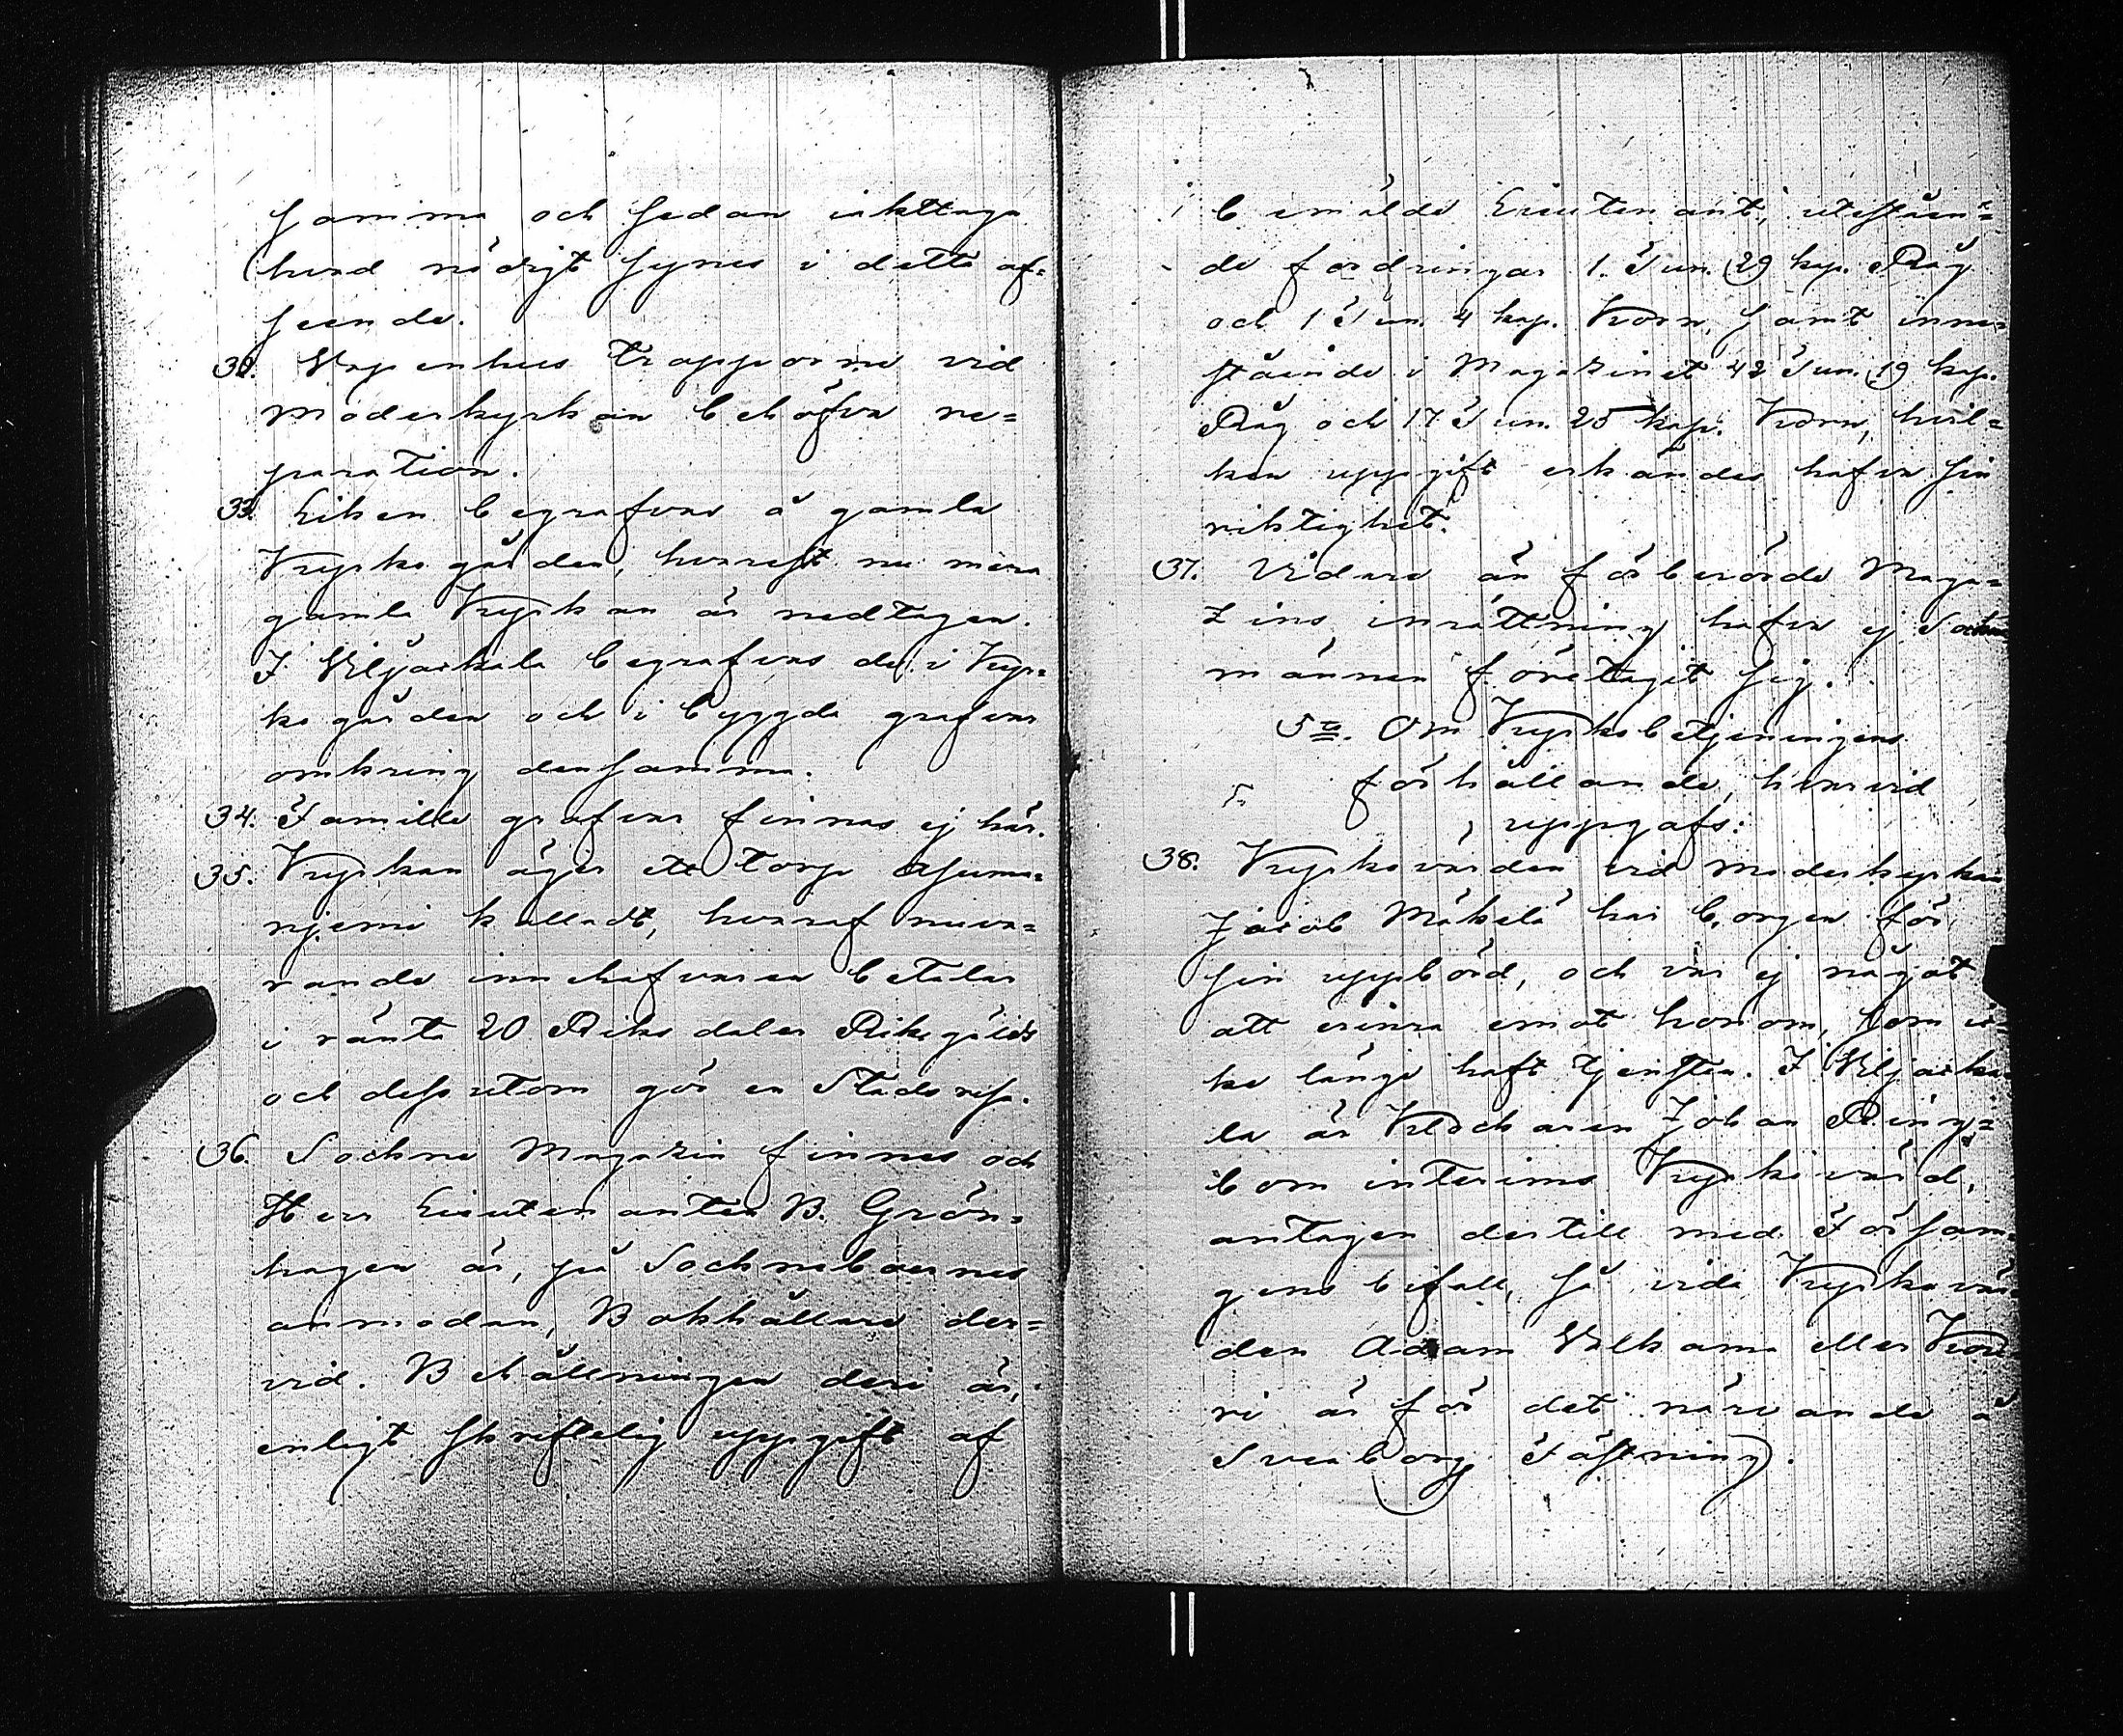 samma och sedan iakttaga
hvad nödigt synes i detta af=
seende.
Vapenhus trapporna vid
Moderkyrkan behöfva re=
paration.
33. Liken begrafvas å gamla
Kyrko gården, hvarest nu mera
gamla Kyrkan är nedtagen.
I Uljaskala begrafvas de i Kyr=
ko gården och i byggda grafvar
omkring densamma.
34. Familie grafvar finnas ej här.
35. Kyrkan äger ett torp
kalladt, hvaraf nuva=
rande innehafvaren betalar
i ränta 20 Riksdaler Riksgälds
och dessutom gör en Stads resa.
36. Sockne Magazin finnes och
Herr Lieutenanten B. Grön=
hagen är, på Sockneboernes
anmodan, Bokhållare der=
vid. Behållningen deri är,
enligt skriftelig uppgift af
bemälde Lieutenant, utestäen=
de fordringar 1. Tun. 29 kap. Råg
och 1 Tun. 4 kap. Korn, samt inne=
stående i Magazinet 42 Tun. 19 kap.
Råg och 17 Tun. 25 kap. Korn, hvil=
ken uppgift erkändes hafva sin
riktighet.
37. Vidare än förberörde Maga=
zins inrättning hafva ej Sockne
männen företagit sig.
5to. Om Kyrkobetjeningens
förhållande, hvarvid
uppgafs:
38. Kyrkovärden vid moderkyrkan
Jacob Mäkelä har borgen för
sin uppbörd, och var ej något
att erinra emot honom, som ic=
ke länge haft tjensten. I Uljaska
la är Klockaren Johan Ring=
bom interims Kyrkovärd,
antagen dertill med Försam
gens bifall, så vida Kyrkovär
den Adam Valkama eller
ri är för det närvarande å
Sveaborgs Fästning).